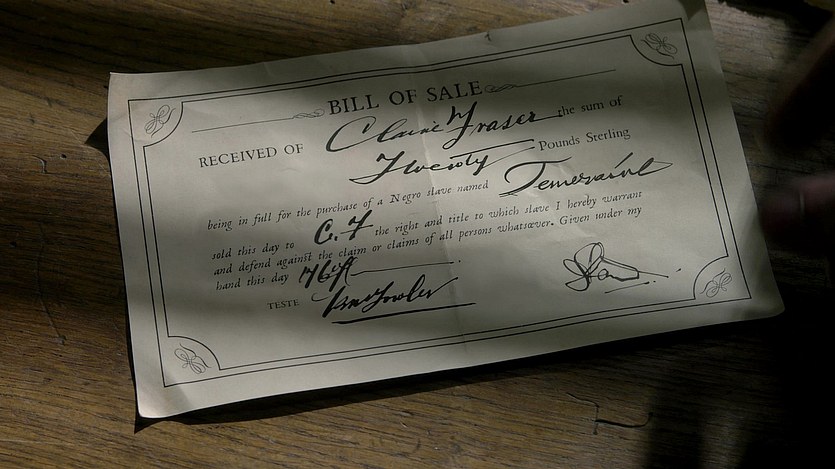 BILL OF SALE
RECEIVED OF Claire Fraser the sum of
Twenty Pounds Sterling
being in full for the purchase of a Negro slave named Temeraire
sold this day to C.F the right and title to which slave I hereby warrant
and defend against the claim or claims of all persons whatsœver. Given under my
hand this day
TESTE Fowler